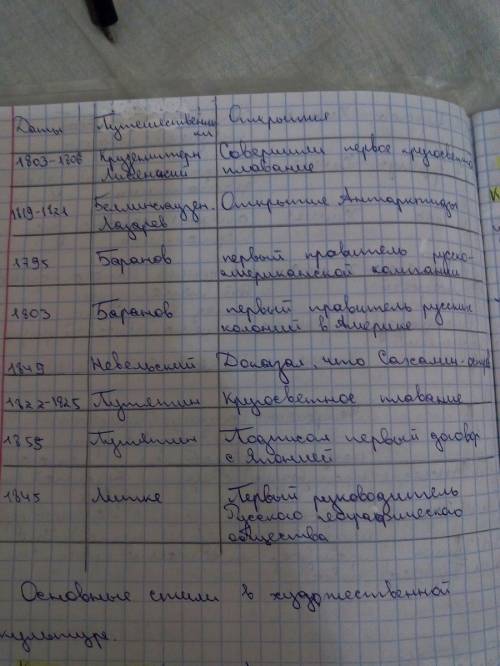 Даты Путешественники Открытия
1803-1806 Крузенштерн Совершили первое кругосветн
Лисянский плавание
1819-1821 Беллинсгаузен. Открытие Антарктиды
Лазарев
1795 Баранов первый правитель русско-
американской компании
1803 Баранов первый правитель русских
колоний в Америке
1849 Невельский Доказал, что Сахалин-остров
1822-1825 Путятин Кругосветное плавание
1855 Путятин Подписал первый договор
с Японией
1845 Литке Первый руководитель
Русского географического
общества
Основные стили в художественной
культуре.